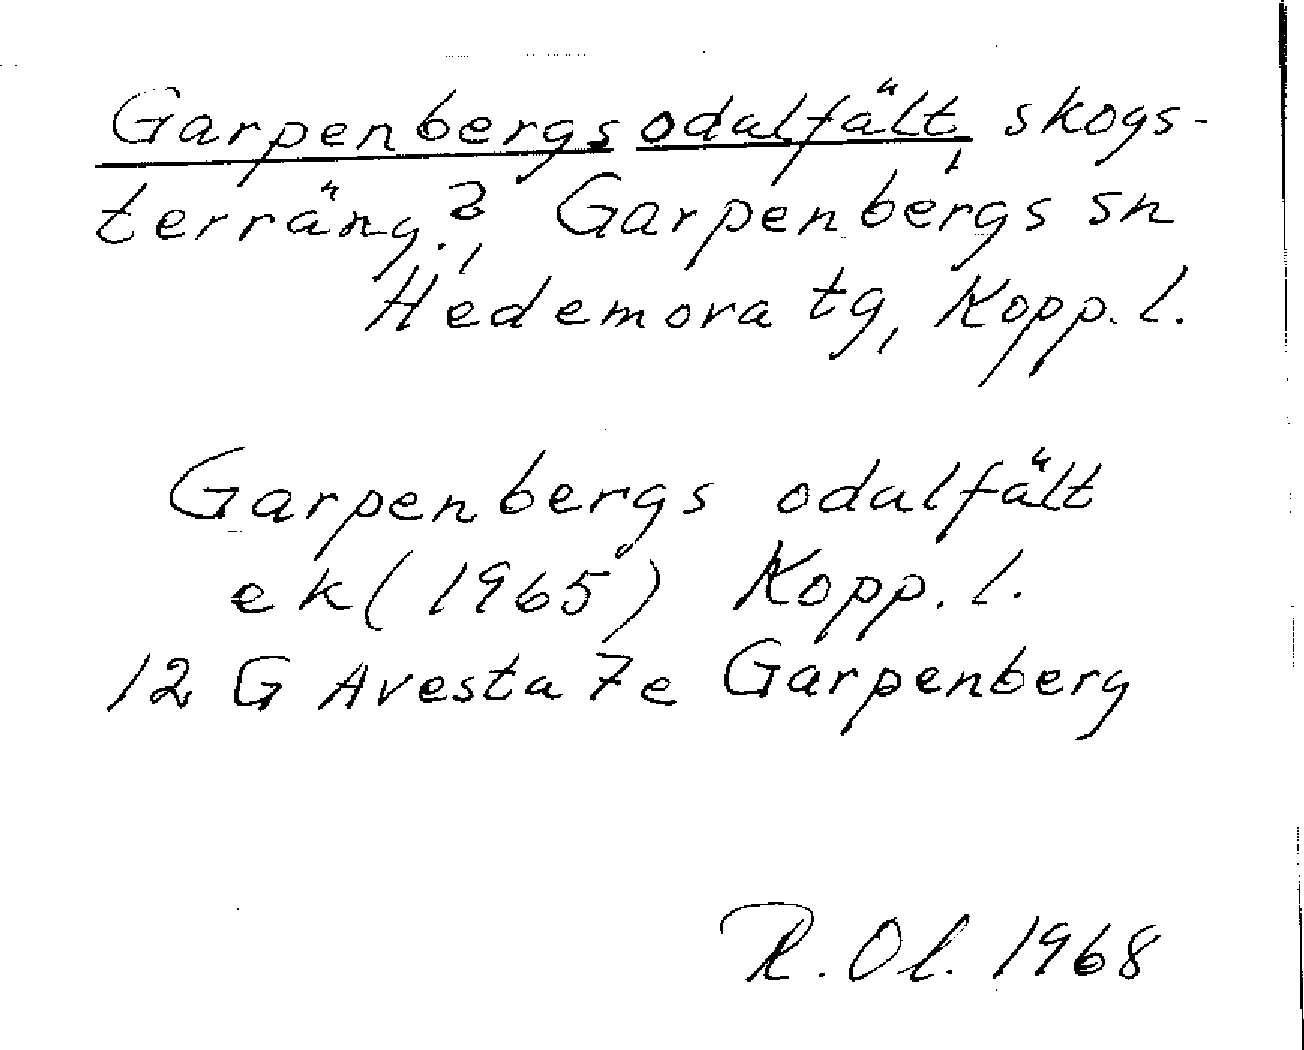 Garpenbergs odalfält, skogs-
terräng?, Garpenbergs sn
Hedemora tg, Kopp. l.
Garpenbergs odalfält
ek (1965) Kopp. l.
12 G Avesta 7e Garpenberg
R. Ol. 1968